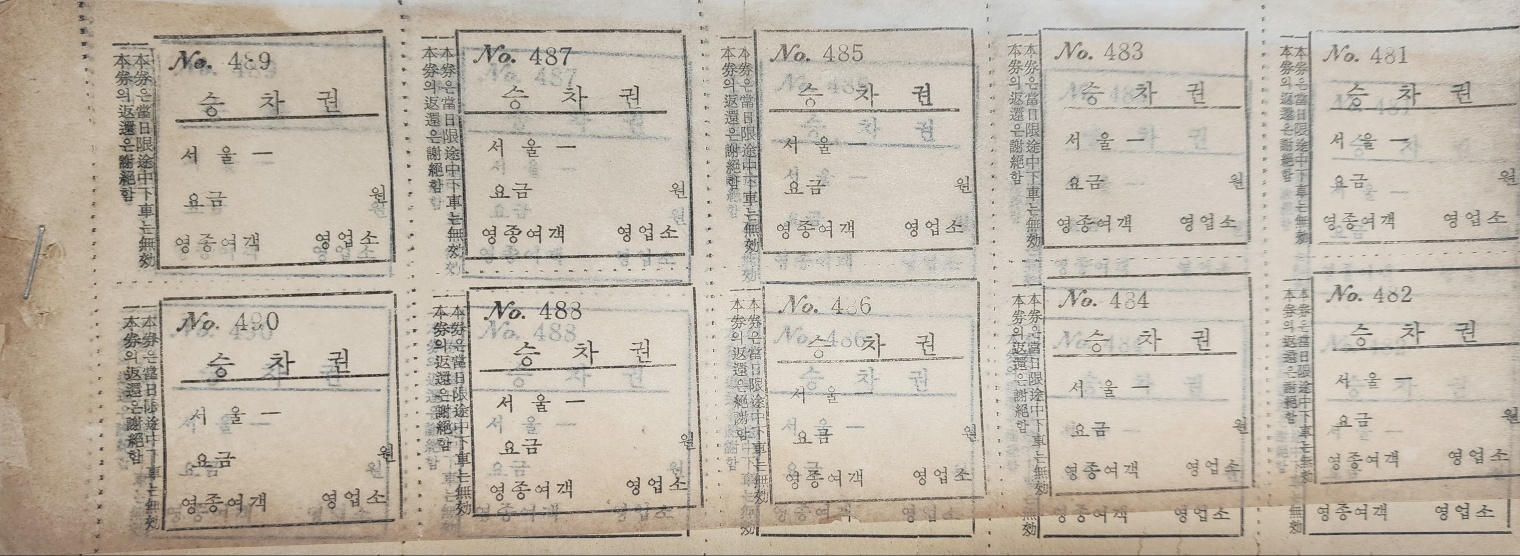 No. 489
승 차 권
서 울 —
요금 원
영종여객 영업소
本券은當日限途中下車는無効
本券의返還은謝絕함
No. 487
승 차 권
서 울 —
요금 원
영종여객 영업소
本券은當日限途中下車는無効
本券의返還은謝絕함
No. 485
승 차 권
서 울 —
요금 원
영종여객 영업소
本券은當日限途中下車는無効
本券의返還은謝絕함
No. 483
승 차 권
서 울 —
요금 원
영종여객 영업소
本券은當日限途中下車는無効
本券의返還은謝絕함
No. 481
승 차 권
서 울 —
요금 원
영종여객 영업소
本券은當日限途中下車는無効
本券의返還은謝絕함
No. 490
승 차 권
서 울 —
요금 원
영종여객 영업소
本券은當日限途中下車는無効
本券의返還은謝絕함
No. 488
승 차 권
서 울 —
요금 원
영종여객 영업소
本券은當日限途中下車는無効
本券의返還은謝絕함
No. 486
승 차 권
서 울 —
요금 원
영종여객 영업소
本券은當日限途中下車는無効
本券의返還은謝絕함
No. 484
승 차 권
서 울 —
요금 원
영종여객 영업소
本券은當日限途中下車는無効
本券의返還은謝絕함
No. 482
승 차 권
서 울 —
요금 원
영종여객 영업소
本券은當日限途中下車는無効
本券의返還은謝絕함